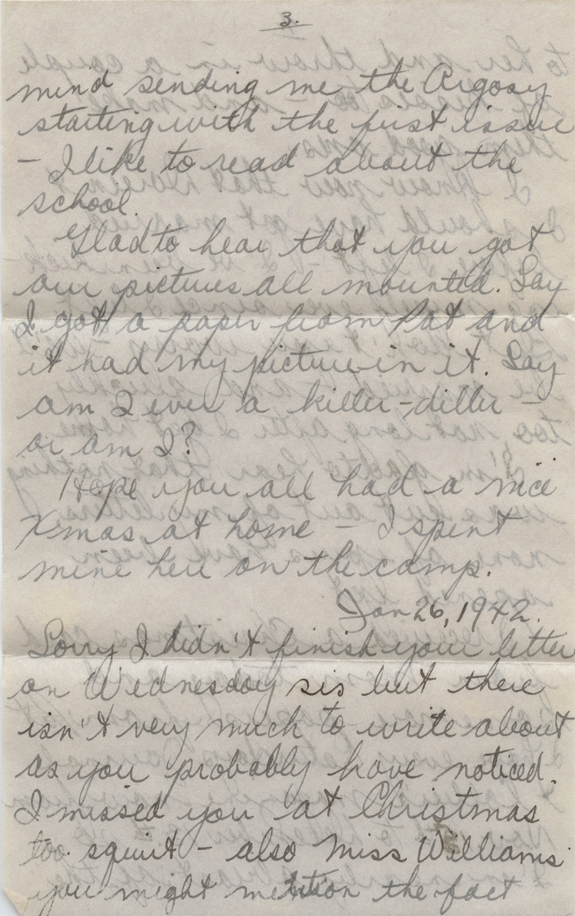 3.
mind sending me the Argosy
starting with the first issue
- I like to read about the
school.
Glad to hear that you got
our pictures all mounted. Say
I got a paper from Pat and
it had my picture in it. Say
am I ever a killer-diller -
or am I?
Hope you all had a nice
Xmas at home - I spent
mine here on the camp.
Jan 26, 1942.
Sorry I didn't finish your letter
on Wednesday sis but there
isn't very much to write about
as you probably have noticed.
I missed you at Christmas
too squirt - also Miss Williams.
you might mention the fact